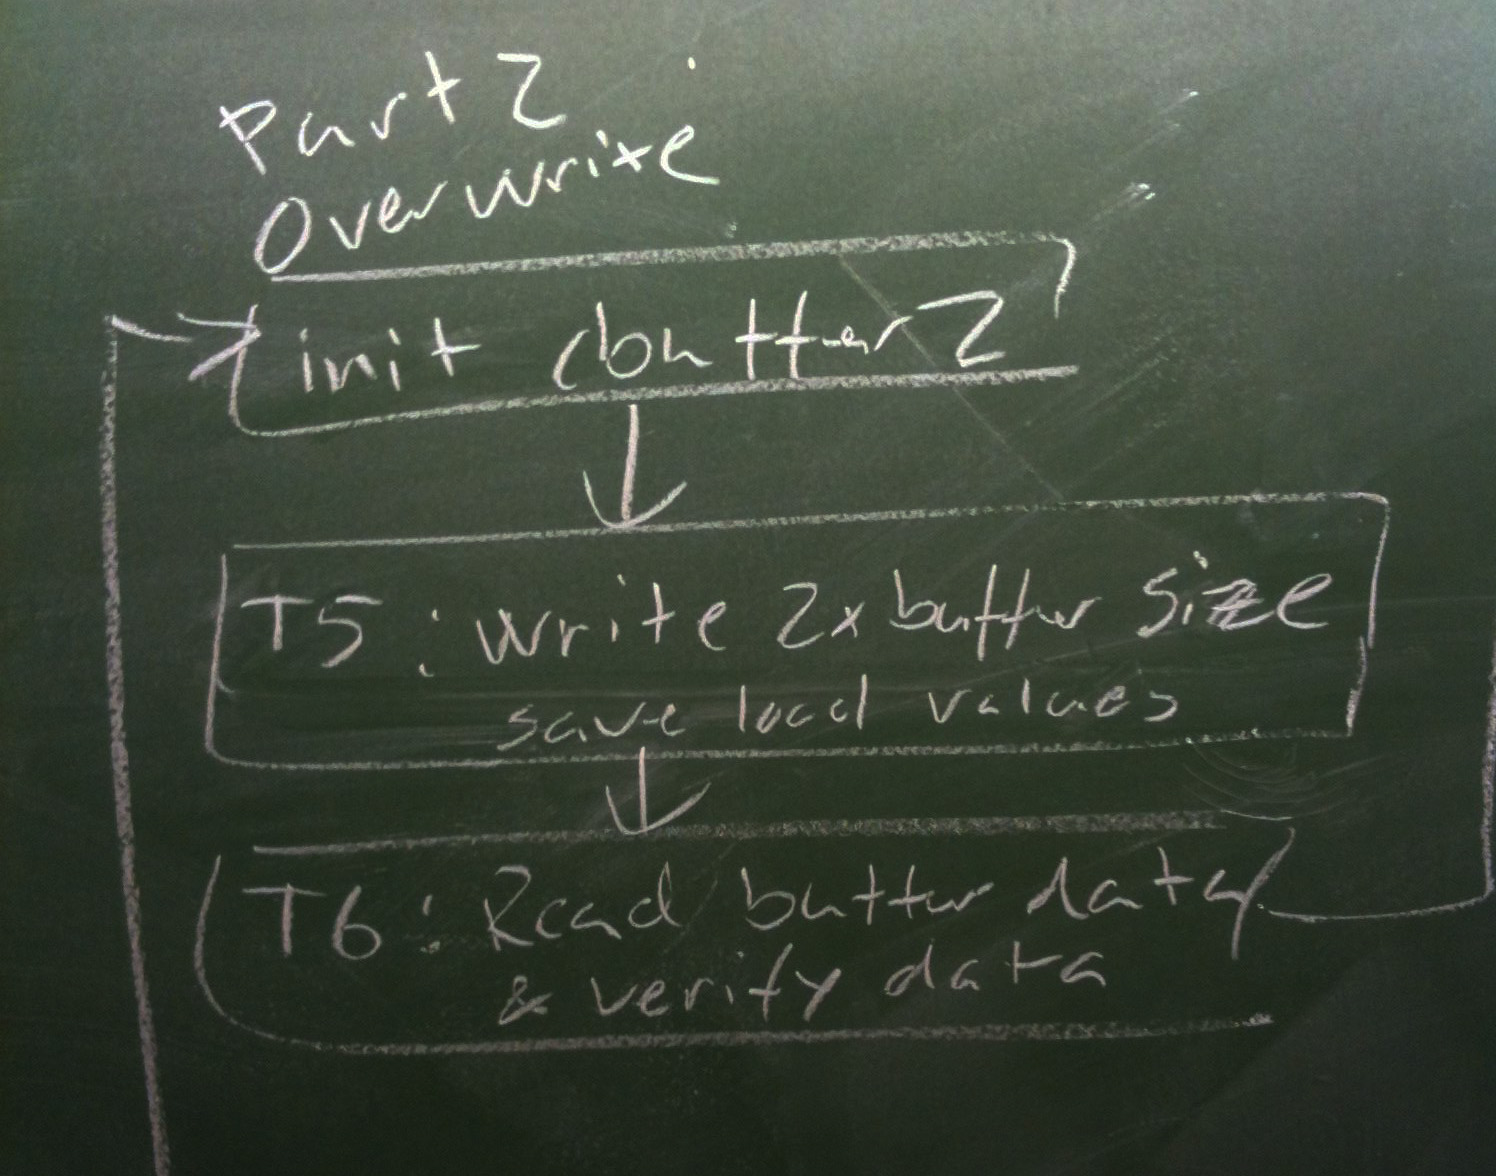 Part 2
Overwrite
init cbuffer 2
T5: write 2x buffer size
save load values
T6: Read buffer data
& verify data